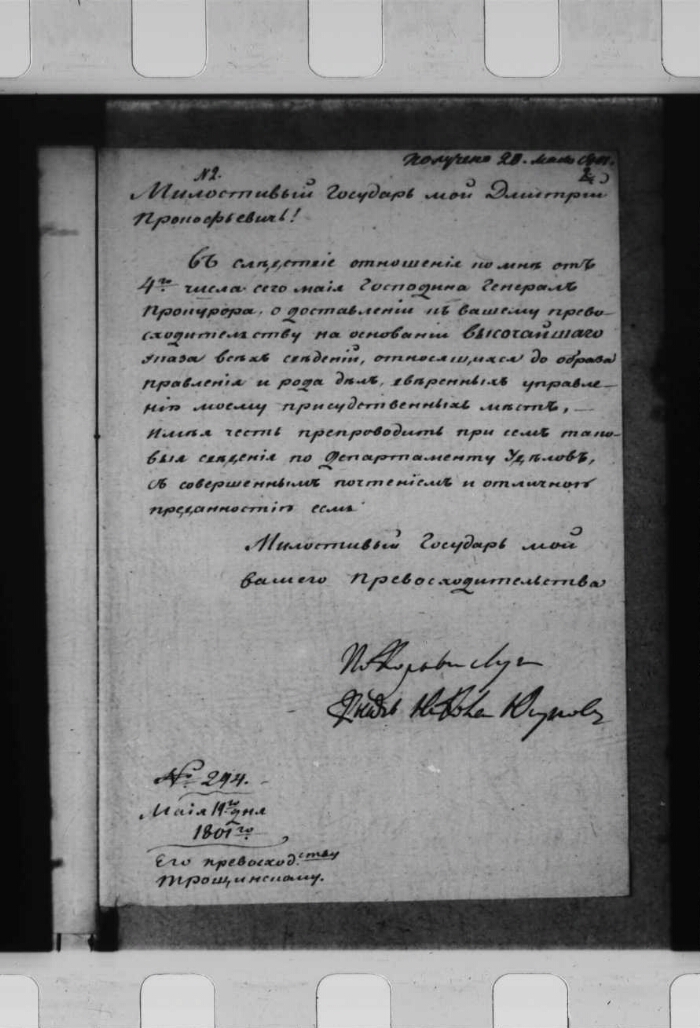 получено 20. маия 1801.
№2.
Милостивый Государь мой Дмитрий
Прокофьевичь!
Въ следствіе отношенія ко мнѣ отъ
4го числа сего маія Господина Генералъ
Прокурора, о доставленіи къ вашему прево-
сходительству на основаніи высочайшаго
указа всѣхъ свѣденій, относящихся до образа
правленія и рода дѣлъ, ввѣренныхъ управле-
нію моему присудственныхъ мѣстъ,
имѣя честь препроводить при семъ тако-
выя свѣденія по департаменту Удѣловъ,
съ совершеннымъ почтеніемъ и отличною
преданностію есмь
Милостивый Государь мой
вашего превосходительства
Князь Юсуповъ
№ 294.
Маія 19го дня
1801го
Его превосход:ству
Трощинскому.